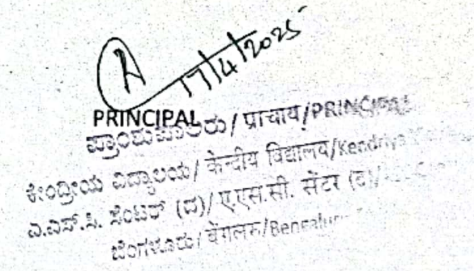 17/4/2025
PRINCIPAL
ಪ್ರಾಂಶುಪಾಲರು / प्राचार्य / PRINCIPAL
ಕೇಂದ್ರೀಯ ವಿದ್ಯಾಲಯ / केन्द्रीय विद्यालय / Kendriya
ಎ.ಎಸ್.ಸಿ. ಸೆಂಟರ್ (ದ) / ए.एस.सी. सेंटर (द) /
ಬೆಂಗಳೂರು / बेंगलरु / Bengaluru